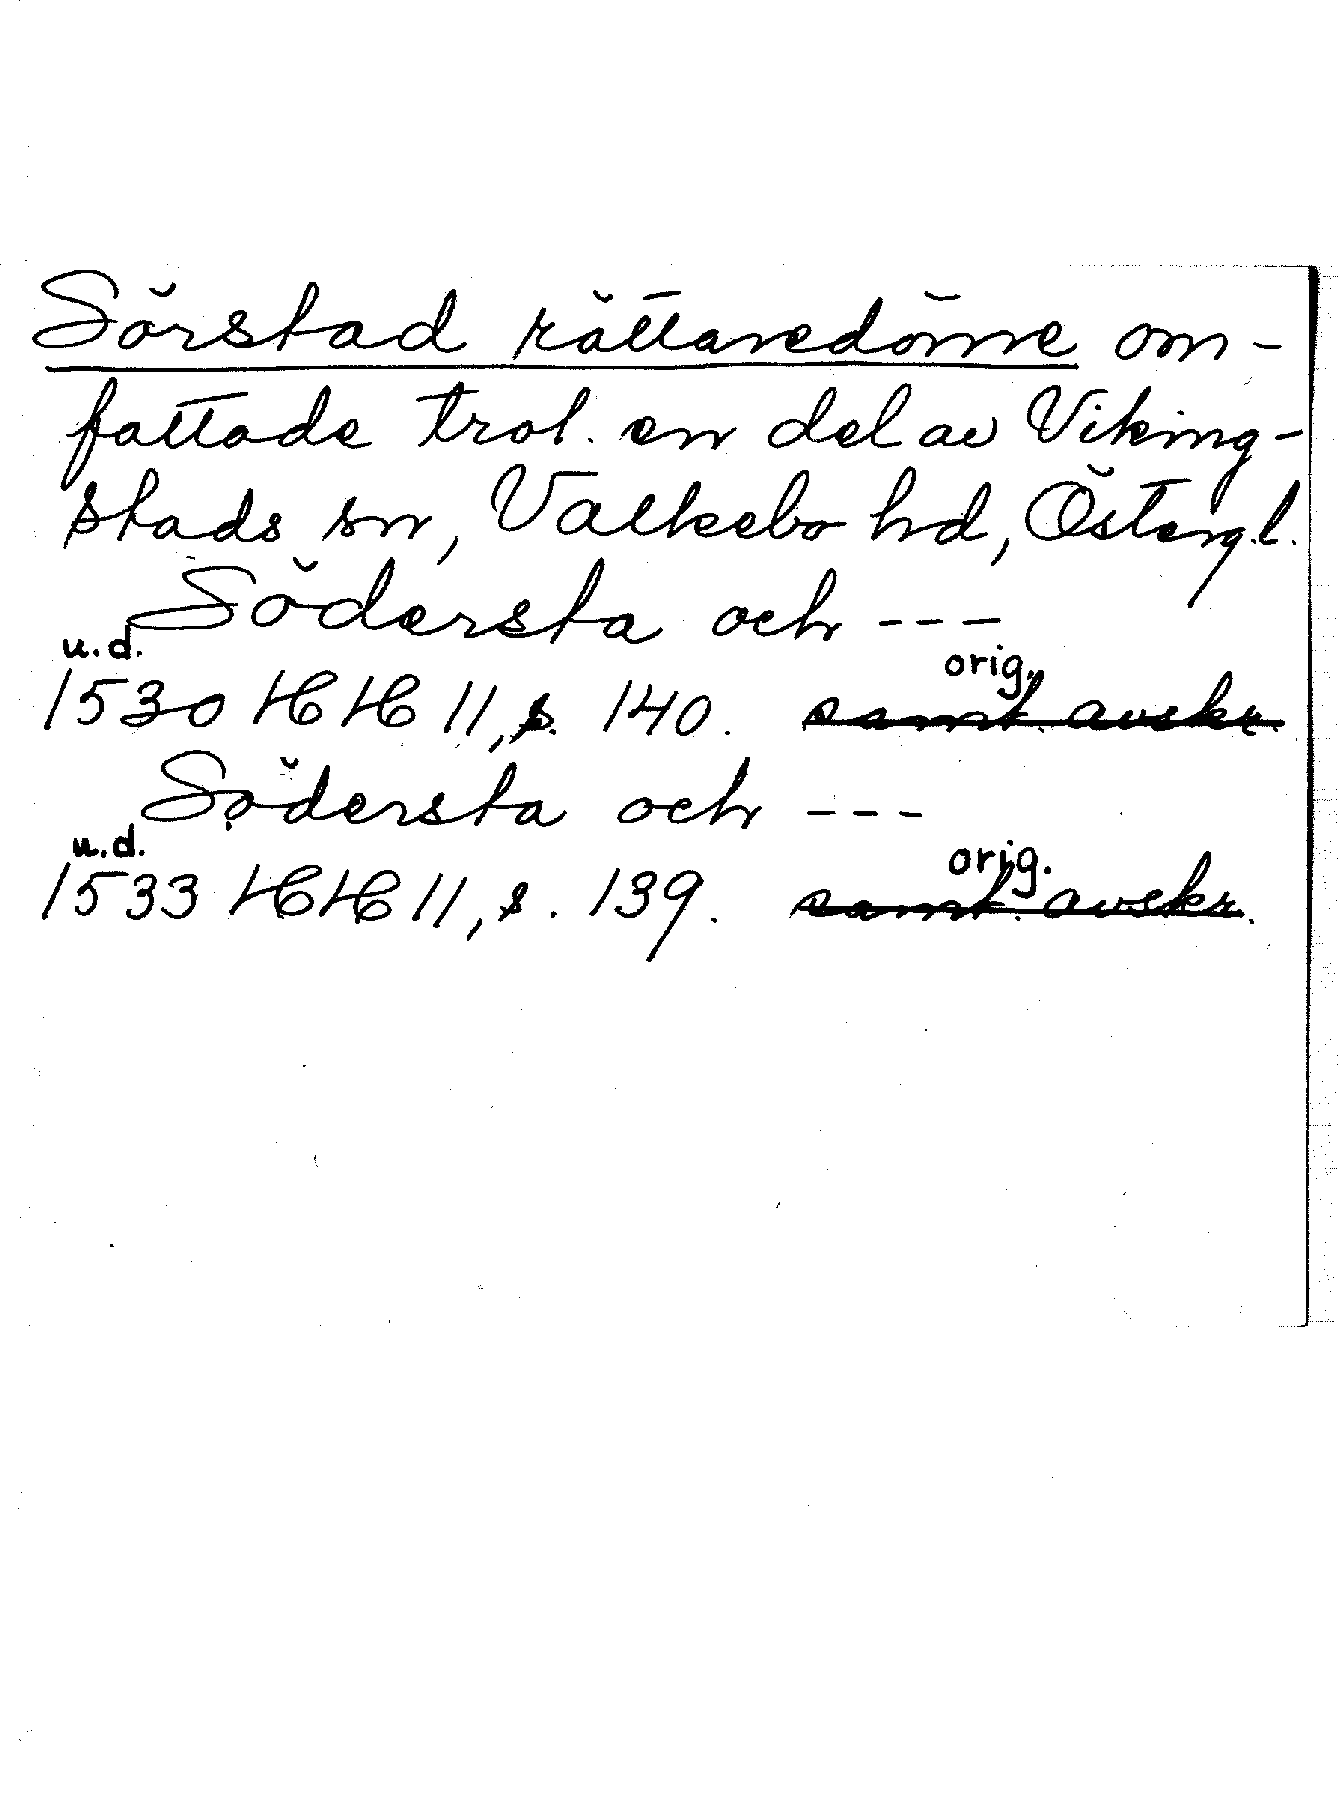 Sörstad rättaredöme om-
fattade trol. en del av Viking-
stads sn, Valkebo hd, Östergl.
Södersta och ---
u.d.
1530 HH 11, s. 140. orig. samt. avskr.
Södersta och ---
u.d.
1533 HH 11, s. 139. orig. samt. avskr.